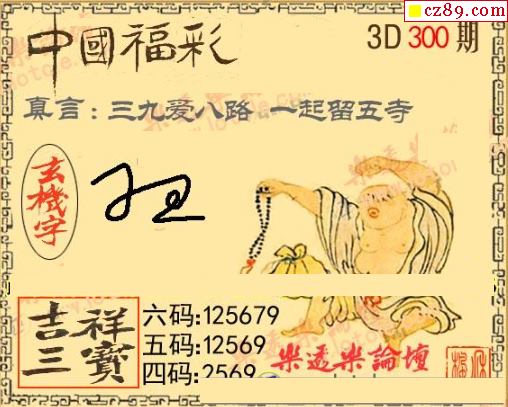 cz89.com
中國福彩
3D 300 期
真言：三九爱八路 一起留五寺
玄機字
吉祥三寶
六码:125679
五码:12569
四码:2569
樂透樂論壇